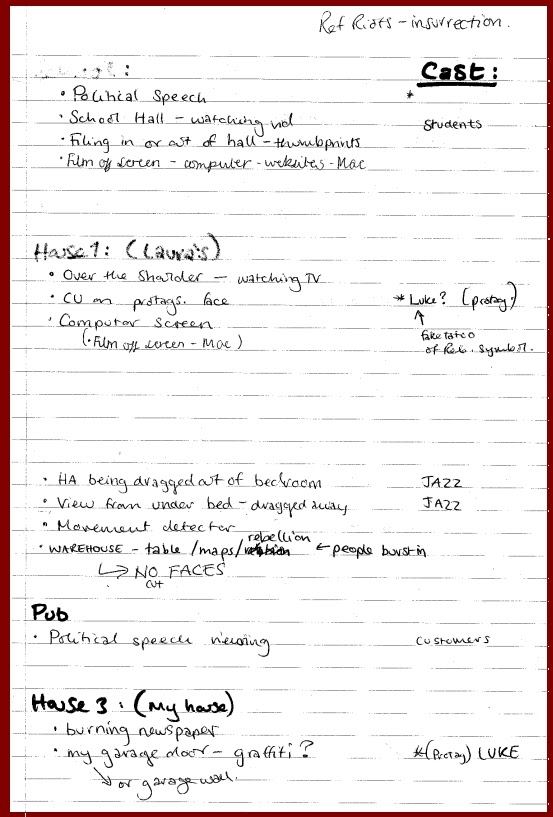 Ref Riots - insurrection.
Cast:
• Political Speech *
• School Hall - watching vid Students
• Filing in or out of hall - thumbprints
• Film off screen - computer - websites - Mac
House 1: (Laura's)
• Over the Shoulder - watching TV
• CU on protags. face * Luke? (protag.)
• Computer Screen
(• Film off screen - Mac)
fake tatoo
of Reb. symbol.
• HA being dragged out of bedroom JAZZ
• View from under bed - dragged away JAZZ
• Movement detector
rebellion
• WAREHOUSE - table / maps / ← people burst in
↳ NO FACES
cut
Pub
• Political speech viewing customers
House 3: (My house)
• burning newspaper
• my garage door - graffiti? *(Protag) LUKE
↳ or garage wall.